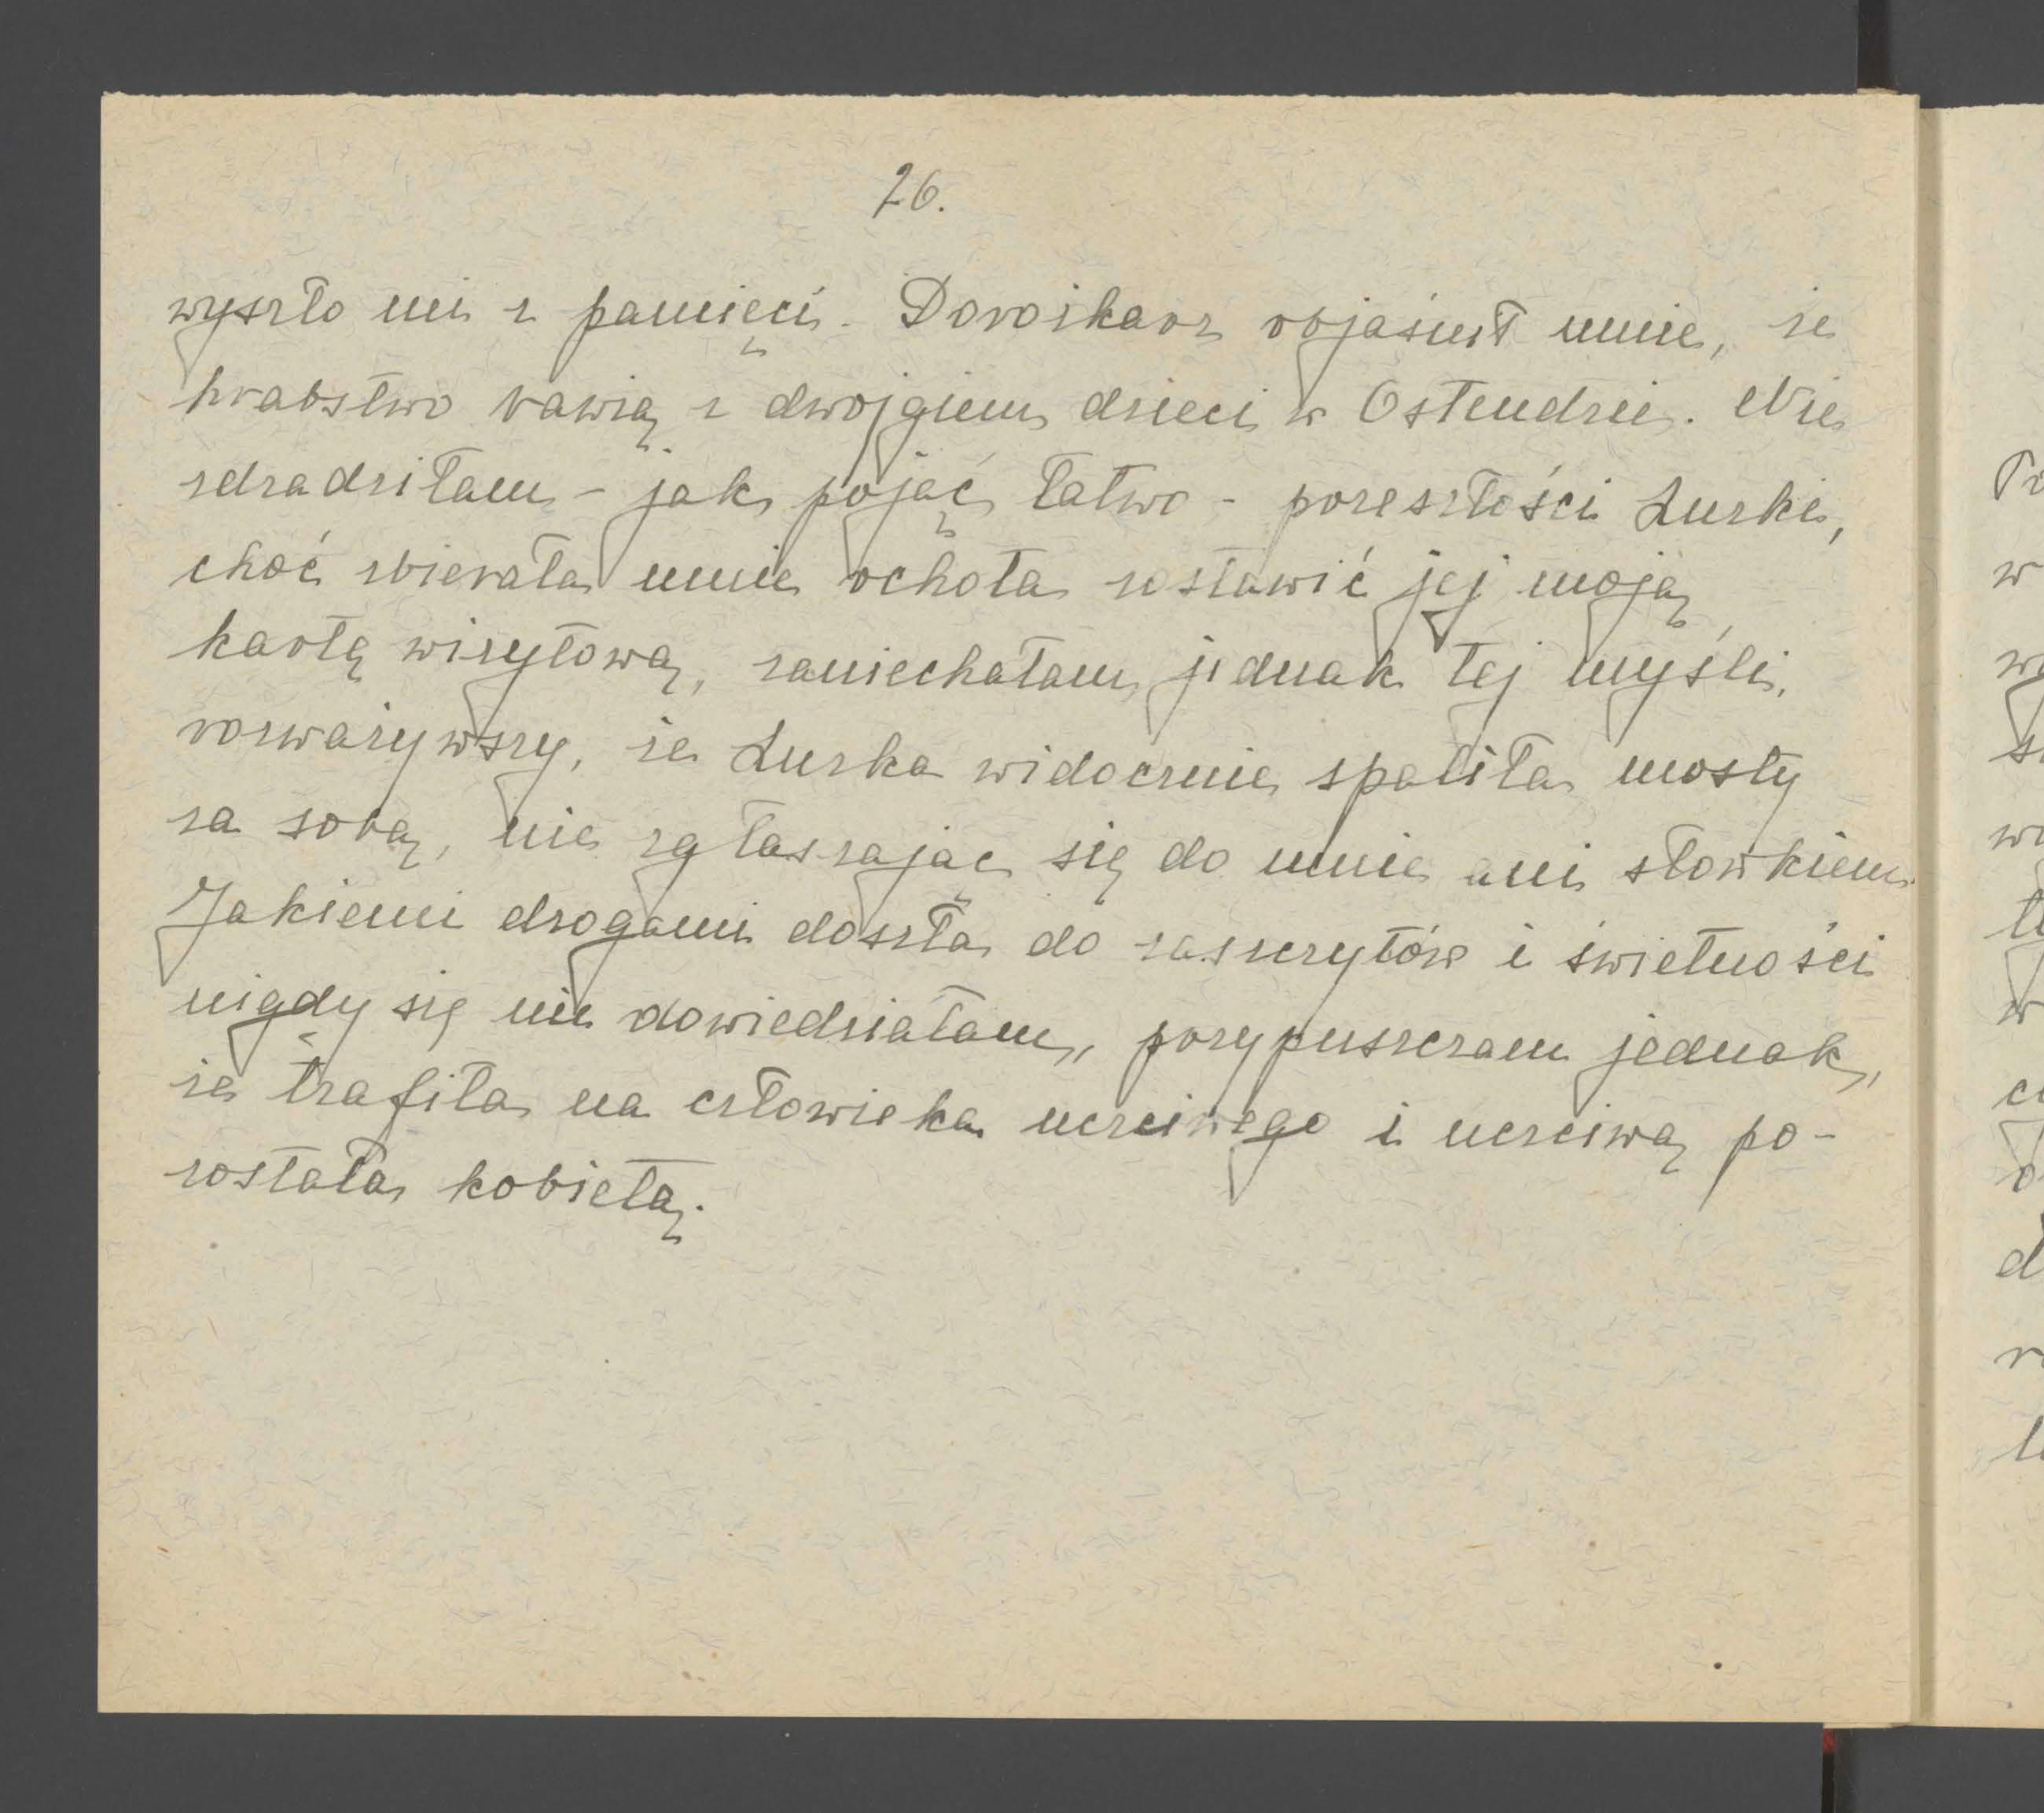 26.
wyszło mi z pamięci. Dorożkarz objaśnił mnie, że
hrabstwo bawią z dwojgiem dzieci w Ostendzie. Nie
zdradziłam - jak pojąć łatwo - przeszłości Zuzki,
choć zbierała mnie ochota zostawić jej moją
kartę wizytową, zaniechałam jednak tej myśli,
rozważywszy, że Zuzka widocznie spaliła mosty
za sobą, nie zgłaszając się do mnie ani słówkiem.
Jakiemi drogami doszła do zaszczytów i świetności
nigdy się nie dowiedziałam, przypuszczam jednak,
że trafiła na człowieka uczciwego i uczciwą po-
została kobietą.